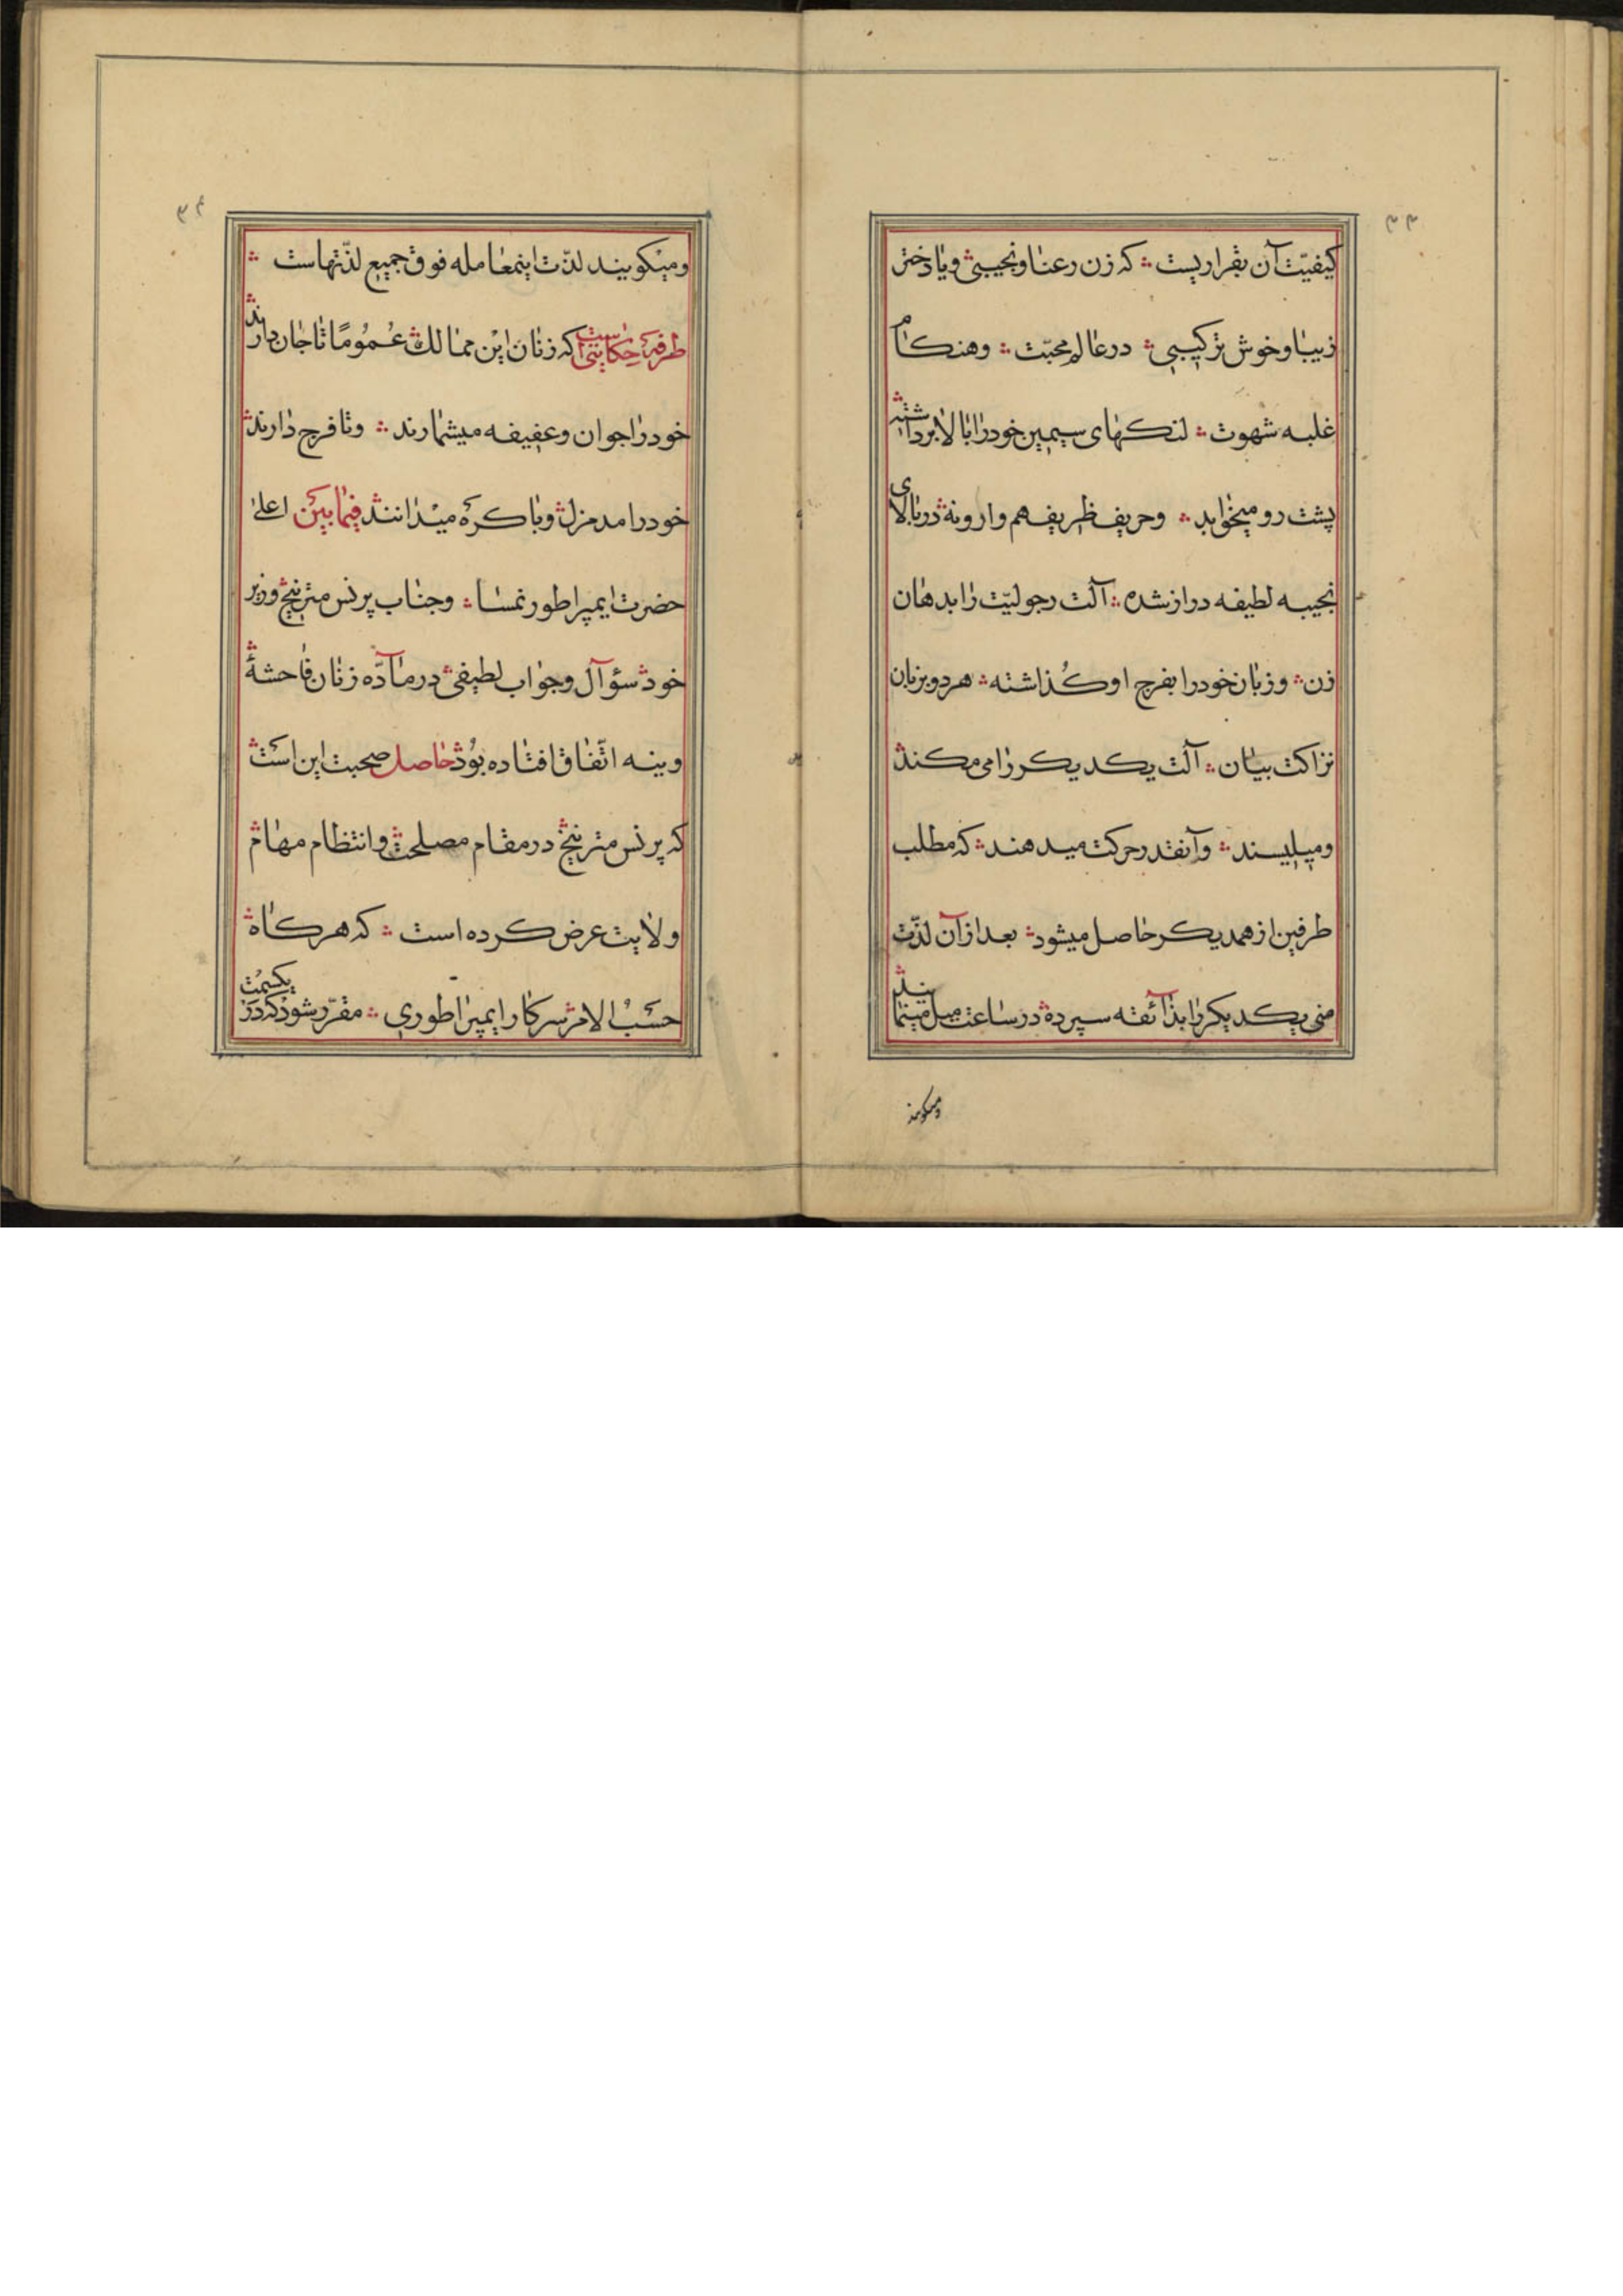 ۳۳
کیفیّت آن بقراریست ؞ که زن رعنا و نجیبی ؞ و یا دختر
زیبا و خوش ترکیبی ؞ در عالم محبّت ؞ و هنکام
غلبه شهوت ؞ لنکهای سیمین خود را بالا برداشته ؞
پشت رو میخوابد ؞ و حریف ظریف هم وارونه در بالای
نجیبه لطیفه دراز شده ؞ آلت رجولیّت را بدهان
زن ؞ و زبان خود را بفرج او کذاشته ؞ هر دو بزبان
نزاکت بیان ؞ آلت یکدیکر را می مکند ؞
و میلیسند ؞ و آنقدر حرکت میدهند ؞ که مطلب
طرفین از همدیکر حاصل میشود ؞ بعد از آن لذّت
منی یکدیکر را بذآئقه سپرده ؞ در ساعت میل مینمایند ؞
ومیکویند
۳۴
و میکویند لذّت اینمعامله فوق جمیع لذّتهاست ؞
طرفه حکایتی است که زنان این ممالک ؞ عمومًا تا جان دارند ؞
خود را جوان و عفیفه میشمارند ؞ و تا فرج دارند ؞
خود را مدمزل ؞ و باکره میدانند ؞ فیما بین اعلی
حضرت ایمپراطور نمسا ؞ و جناب پرنس مترنیخ ؞ وزیر
خود ؞ سؤآل و جواب لطیفی ؞ در مآدّه زنان فاحشهٔ ؞
وینه اتّفاق افتاده بود ؞ حاصل صحبت این است ؞
که پرنس مترنیخ ؞ در مقام مصلحت ؞ و انتظام مهام ؞
ولایت عرض کرده است ؞ که هرکاه ؞
حسب الامر سرکار ایمپراطوری ؞ مقرّر شود که در یکسمت